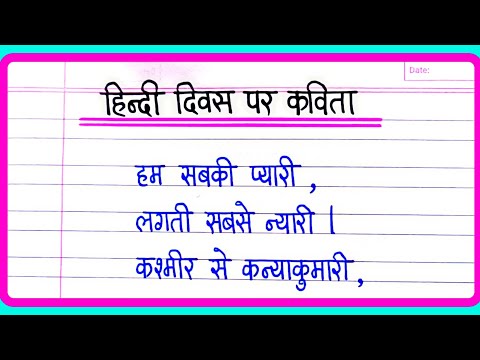 Date:
हिन्दी दिवस पर कविता
हम सबकी प्यारी ,
लगती सबसे न्यारी ।
कश्मीर से कन्याकुमारी ,